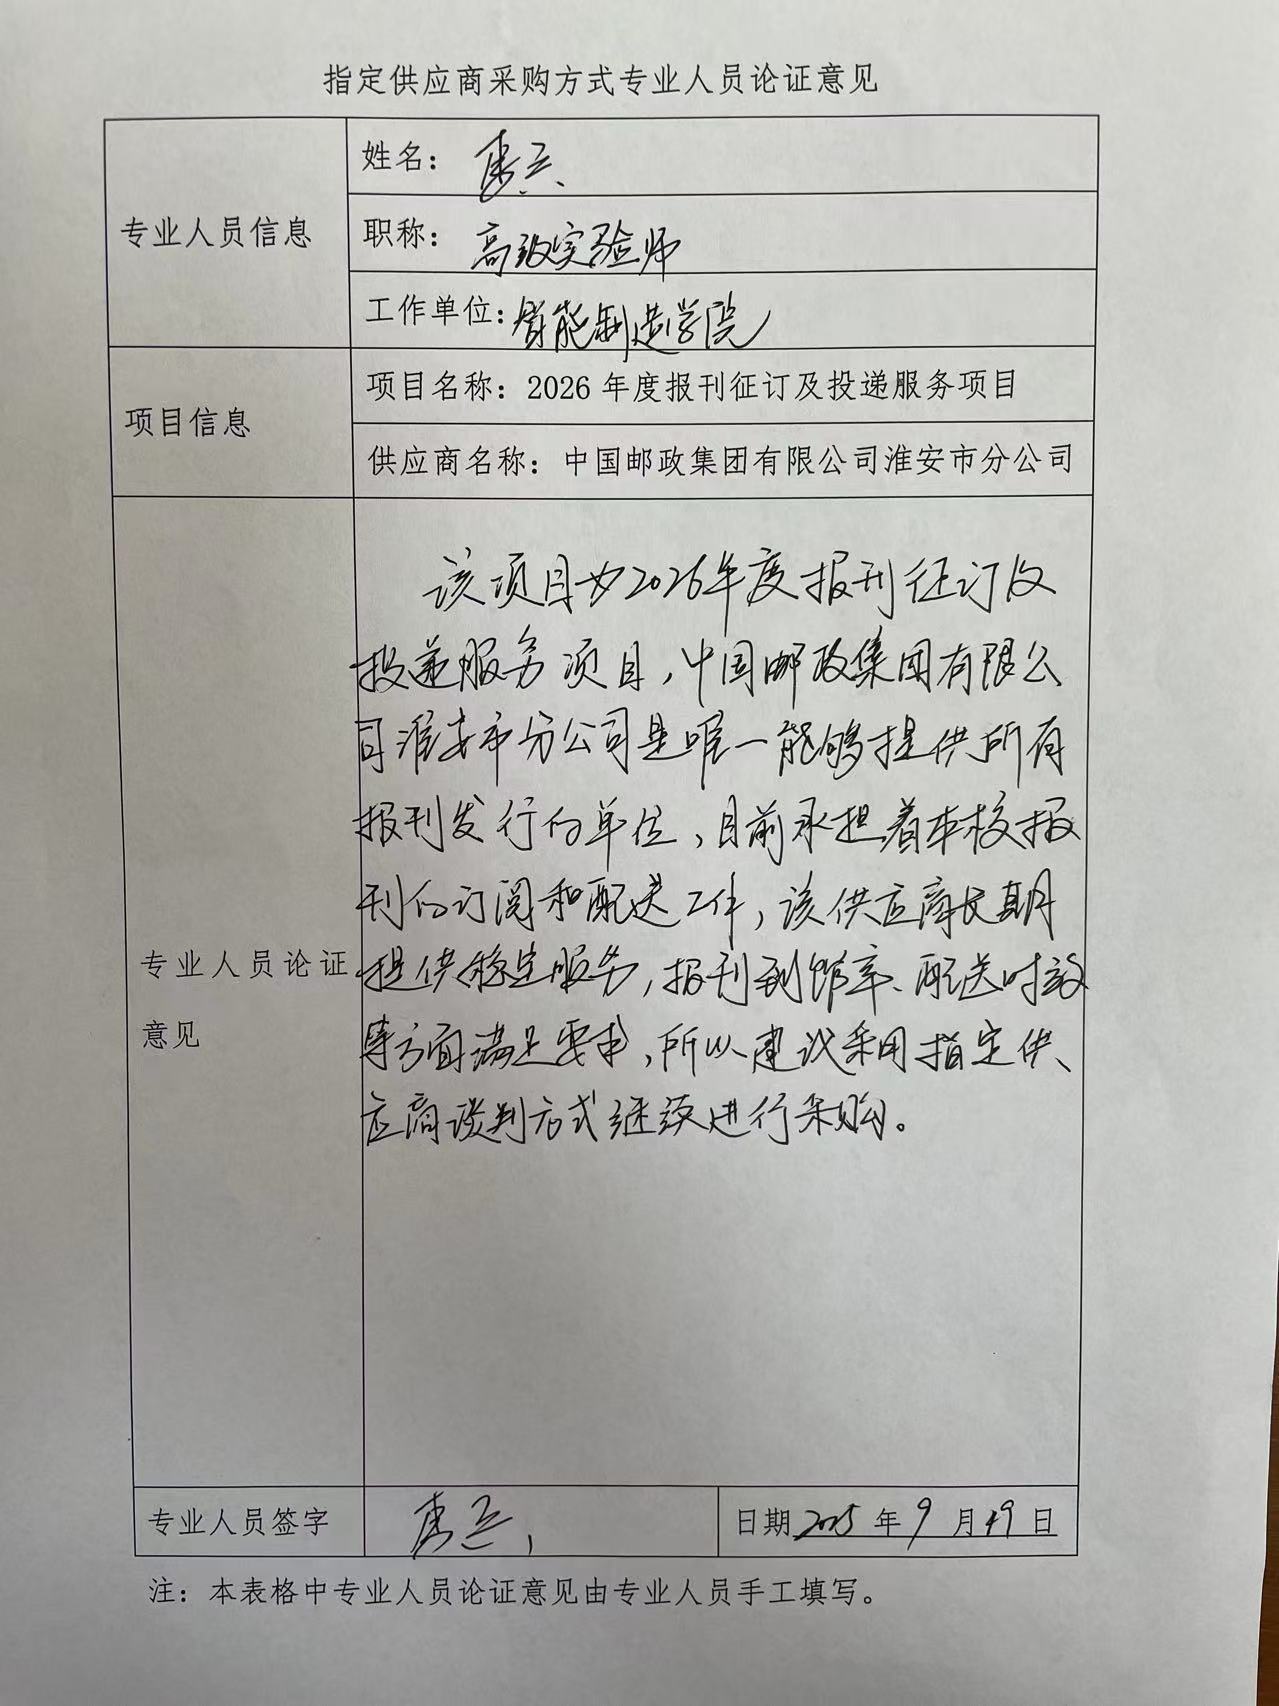 指定供应商采购方式专业人员论证意见
专业人员信息
姓名：
职称：高级实验师
工作单位：智能制造学院
项目信息
项目名称：2026年度报刊征订及投递服务项目
供应商名称：中国邮政集团有限公司淮安市分公司
专业人员论证
意见
该项目为2026年度报刊征订及
投递服务项目，中国邮政集团有限公
司淮安市分公司是唯一能够提供所有
报刊发行的单位，目前承担着本校报
刊的订阅和配送工作，该供应商长期
提供稳定服务，报刊到馆率、配送时效
等方面满足要求，所以建议采用指定供
应商谈判方式继续进行采购。
专业人员签字
日期2025年9月日
注：本表格中专业人员论证意见由专业人员手工填写。